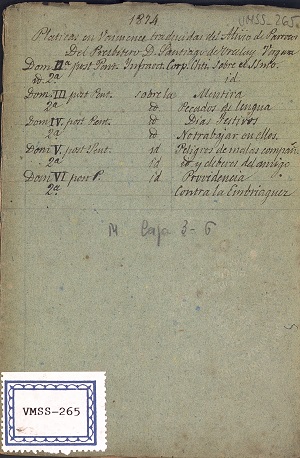 1874
VMSS-265
Platicas en Vascuence traducidas del Amigo de Parroc
Del Presbitero D. Santiago de Vergara
Dom. IIª post Pent. Infraoct. Corp. Chti. sobre el SSmo.
id. 2ª id.
Dom. III post Pent. sobre la Mentira
2ª id. Pecados de lengua
Dom IV. post Pent. id Dias festivos
2ª id No trabajar en ellos
Dom V. post Pent. id Peligros de malas compañi
2ª id y deberes del amigo
Dom VI post P. id Providencia
2ª Contra la Embriaguez
M Caja 3-6
VMSS-265